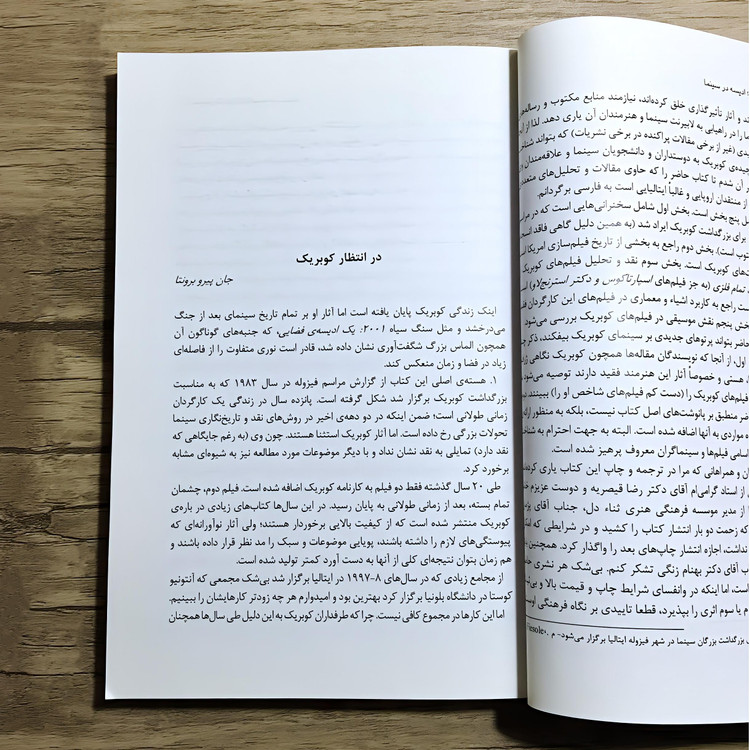 ادیسه در سینما
و آثار تأثیرگذاری خلق کرده‌اند، نیازمند منابع مکتوب و
را در راهیابی به لابیرنت سینما و هنرمندان آن یاری دهد. لذا از
(غیر از برخی مقالات پراکنده در برخی نشریات) که بتواند
کوبریک به دوستداران و دانشجویان سینما و علاقه‌مندان
آن شدم تا کتاب حاضر را که حاوی مقالات و تحلیل‌های
از منتقدان اروپایی و غالباً ایتالیایی است به فارسی برگردانم.
پنج بخش است. بخش اول شامل سخنرانی‌هایی است که در
برای بزرگداشت کوبریک ایراد شد (به همین دلیل گاهی فاقد
است). بخش دوم راجع به بخشی از تاریخ فیلم‌سازی امریکا
کوبریک است. بخش سوم نقد و تحلیل فیلم‌های کوبریک
تمام فلزی (به جز فیلم‌های اسپارتاکوس و دکتر استرنج‌لاو)
راجع به کاربرد اشیاء و معماری در فیلم‌های این کارگردان
پنجم نقش موسیقی در فیلم‌های کوبریک بررسی می‌شود.
حاضر بتواند پرتوهای جدیدی بر سینمای کوبریک بیفکند، ذکر
اول، از آنجا که نویسندگان مقاله‌ها همچون کوبریک نگاهی
هستی و خصوصاً آثار این هنرمند فقید دارند توصیه می‌شود
فیلم‌های کوبریک را (دست کم فیلم‌های شاخص او را) ببینند
منطبق بر پانوشت‌های اصل کتاب نیست، بلکه به منظور
مواردی به آنها اضافه شده است. البته به جهت احترام به
اسامی فیلم‌ها و سینماگران معروف پرهیز شده است.
و همراهانی که مرا در ترجمه و چاپ این کتاب یاری
از استاد گرامی‌ام آقای دکتر رضا قیصریه و دوست عزیزم
از مدیر موسسه فرهنگی هنری ثناء دل، جناب آقای
که زحمت دو بار انتشار کتاب را کشید و در شرایطی که
نداشت، اجازه انتشار چاپ‌های بعد را واگذار کرد. همچنین
آقای دکتر بهنام زنگی تشکر کنم. بی‌شک هر نشری
است، اما اینکه در وانفسای شرایط چاپ و قیمت بالا و
یا سوم اثری را بپذیرد، قطعا تاییدی بر نگاه فرهنگی
بزرگداشت بزرگان سینما در شهر فیزوله ایتالیا برگزار می‌شود- م.
در انتظار کوبریک
جان پیرو برونتا
اینک زندگی کوبریک پایان یافته است اما آثار او بر تمام تاریخ سینمای بعد از جنگ
می‌درخشد و مثل سنگ سیاه ۲۰۰۱: یک ادیسه‌ی فضایی، که جنبه‌های گوناگون آن
همچون الماس بزرگ شگفت‌آوری نشان داده شد، قادر است نوری متفاوت را از فاصله‌ای
زیاد در فضا و زمان منعکس کند.
۱. هسته‌ی اصلی این کتاب از گزارش مراسم فیزوله در سال ۱۹۸۳ که به مناسبت
بزرگداشت کوبریک برگزار شد شکل گرفته است. پانزده سال در زندگی یک کارگردان
زمانی طولانی است؛ ضمن اینکه در دو دهه‌ی اخیر در روش‌های نقد و تاریخ‌نگاری سینما
تحولات بزرگی رخ داده است. اما آثار کوبریک استثنا هستند. چون وی (به رغم جایگاهی که
نقد دارد) تمایلی به نقد نشان نداد و با دیگر موضوعات مورد مطالعه نیز به شیوه‌ای مشابه
برخورد کرد.
طی ۲۰ سال گذشته فقط دو فیلم به کارنامه کوبریک اضافه شده است. فیلم دوم، چشمان
تمام بسته، بعد از زمانی طولانی به پایان رسید. در این سال‌ها کتاب‌های زیادی در باره‌ی
کوبریک منتشر شده است که از کیفیت بالایی برخوردار هستند؛ ولی آثار نوآورانه‌ای که
پیوستگی‌های لازم را داشته باشند، پویایی موضوعات و سبک را مد نظر قرار داده باشند و
هم زمان بتوان نتیجه‌ای کلی از آنها به دست آورد کمتر تولید شده است.
از مجامع زیادی که در سال‌های ۸-۱۹۹۷ در ایتالیا برگزار شد بی‌شک مجمعی که آنتونیو
کوستا در دانشگاه بلونیا برگزار کرد بهترین بود و امیدوارم هر چه زودتر کارهایشان را ببینیم.
اما این کارها در مجموع کافی نیست. چرا که طرفداران کوبریک به این دلیل طی سال‌ها همچنان